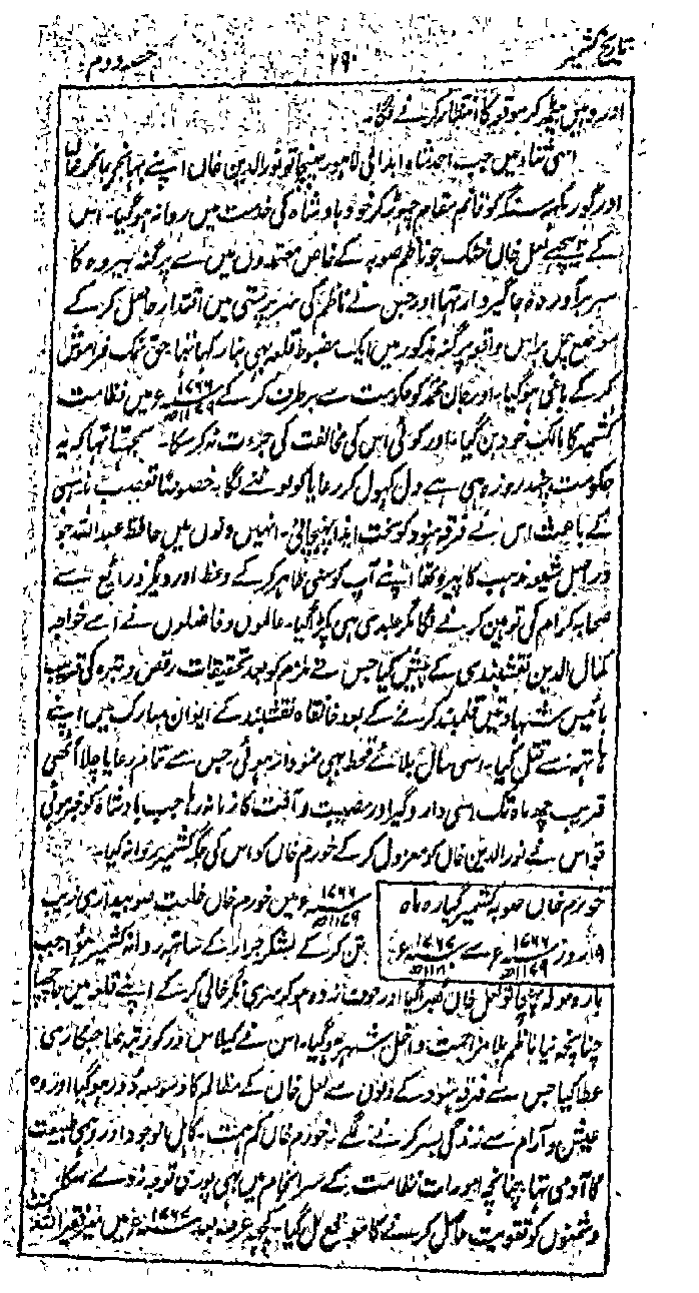 تاریخ کشمیر ۲۹۰ حصہ دوم
اور وہیں بیٹھ کر موقعہ کا انتظار کرنے لگا۔
اسی اثناء میں جب احمد شاہ ابدالی لاہور پہنچا تو نور الدین خاں اپنے بھانجہ جان محمد خاں
اور کو قائم مقام چھوڑ کر خود بادشاہ کی خدمت میں روانہ ہو گیا۔ اس
کے پیچھے لعل خاں خٹک جو ناظم صوبہ کے خاص معتمدوں میں سے پرگنہ بیروہ کا
سربرآوردہ جاگیردار تھا اور جس نے ناظم کی سرپرستی میں اقتدار حاصل کر کے
موضع واقع پرگنہ مذکور میں ایک مضبوط قلعہ بھی بنا رکھا تھا حق نمک فراموش
کر کے باغی ہو گیا۔ اور جان محمد کو حکومت سے برطرف کر کے ۱۷۶۶ء ۱۱۷۹ھ میں نظامت
کشمیر کا مالک خود بن گیا۔ اور کوئی اس کی مخالفت کی جرءت نہ کر سکا۔ سمجھتا تھا کہ یہ
حکومت چند روزہ ہی ہے دل کھول کر رعایا کو لوٹنے لگا۔ خصوصاً تعصب مذہبی
کے باعث اس نے فرقہ ہنود کو سخت ایذا پہنچائی۔ انہیں دنوں میں حافظ عبداللہ جو
دراصل شیعہ مذہب کا پیرو تھا اپنے آپ کو سنی ظاہر کر کے وعظ اور دیگر ذرائع سے
صحابہ کرام کی توہین کرنے لگا مگر جلدی ہی پکڑا گیا۔ عالموں و فاضلوں نے اسے خواجہ
کمال الدین نقشبندی کے پیش کیا جس نے ملزم کو بعد تحقیقات رفض و تبرہ کی قریب
بائیس شہادتیں قلمبند کرنے کے بعد خانقاہ نقشبند کے ایوان مبارک میں اپنے
ہاتھ سے قتل کیا۔ اسی سال بلائے قحط بھی نمودار ہوئی جس سے تمام رعایا چلا اٹھی
قریب چھ ماہ تک اسی دار و گیر اور مصیبت و آفت کا زمانہ رہا جب بادشاہ کو خبر ہوئی
تو اس نے نور الدین خاں کو معزول کر کے خورم خاں کو اس کی جگہ کشمیر پر روانہ کیا۔
خورم خاں صوبہ کشمیر گیارہ ماہ
۱۹ روز ۱۷۶۶ء ۱۱۷۹ھ سے ۱۷۶۷ء ۱۱۸۰ھ
۱۷۶۶ء ۱۱۷۹ھ میں خورم خاں خلعت صوبیداری زیب
تن کر کے لشکر جرار کے ساتھ روانہ کشمیر ہوا جب
بارہ مولہ پہنچا تو لعل خاں گھبرا گیا اور خوف زدہ ہو کر سری نگر خالی کر کے اپنے قلعہ میں جا چھپا
چنانچہ نیا ناظم بلا مزاحمت داخل شہر ہو گیا۔ اس نے کیلاس در کو رتبہ صاحبکاری
عطا کیا جس سے فرقہ ہنود کے دلوں سے لعل خاں کے مظالم کا وسوسہ دور ہو گیا اور وہ
عیش و آرام سے زندگی بسر کرنے لگے۔ خورم خاں کم ہمت۔ کاہل الوجود اور طبیعت
کا آدمی تھا۔ چنانچہ امورات نظامت کے سرانجام میں بھی پوری توجہ نہ دے سکا۔
دشمنوں کو تقویت حاصل کرنے کا موقع مل گیا۔ کچھ عرصہ بعد ۱۷۶۷ء میں میر فقیر اللہ